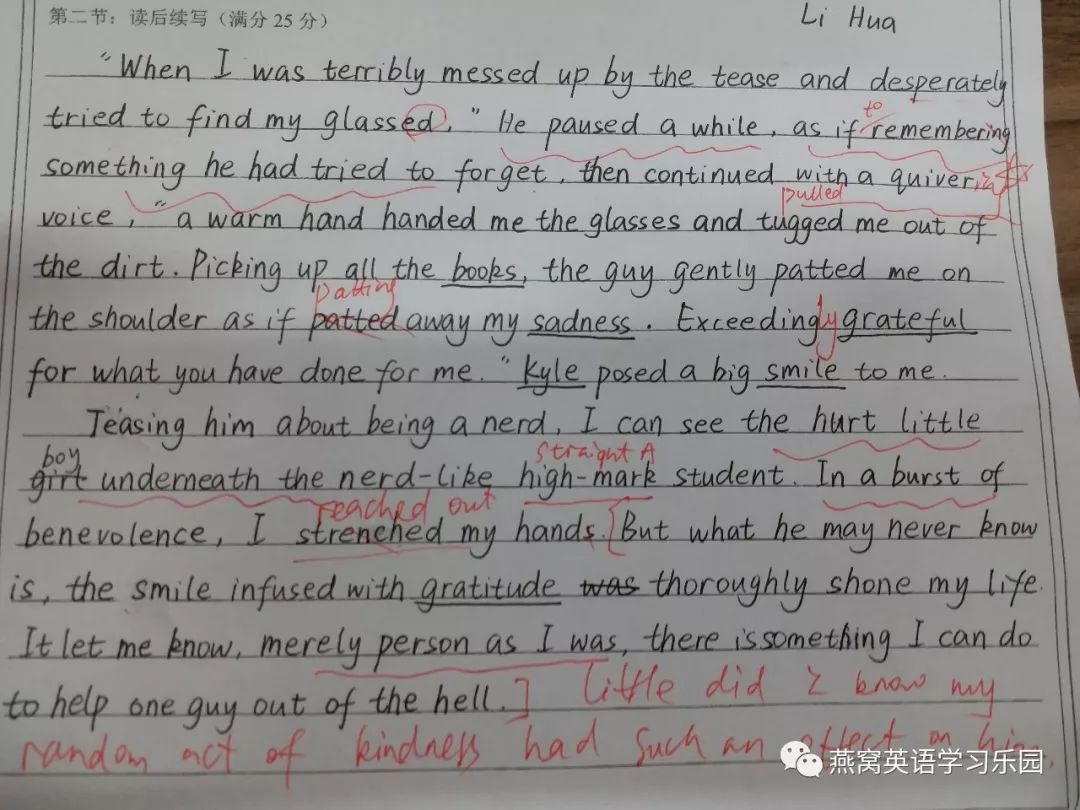 第二节：读后续写（满分 25 分）
Li Hua
"When I was terribly messed up by the tease and desperately
tried to find my glassed." He paused a while, as if remembering
to
something he had tried to forget, then continued with a quivering
pulled
voice, "a warm hand handed me the glasses and tugged me out of
the dirt. Picking up all the books, the guy gently patted me on
patting
the shoulder as if patted away my sadness. Exceedingly grateful
for what you have done for me." Kyle posed a big smile to me.
Teasing him about being a nerd, I can see the hurt little
boy
straight A
girt underneath the nerd-like high-mark student. In a burst of
reached out
benevolence, I strenched my hands. But what he may never know
is, the smile infused with gratitude was thoroughly shone my life.
It let me know, merely person as I was, there is something I can do
to help one guy out of the hell.] Little did I know my
random act of kindness had such an effect on him.
燕窝英语学习乐园